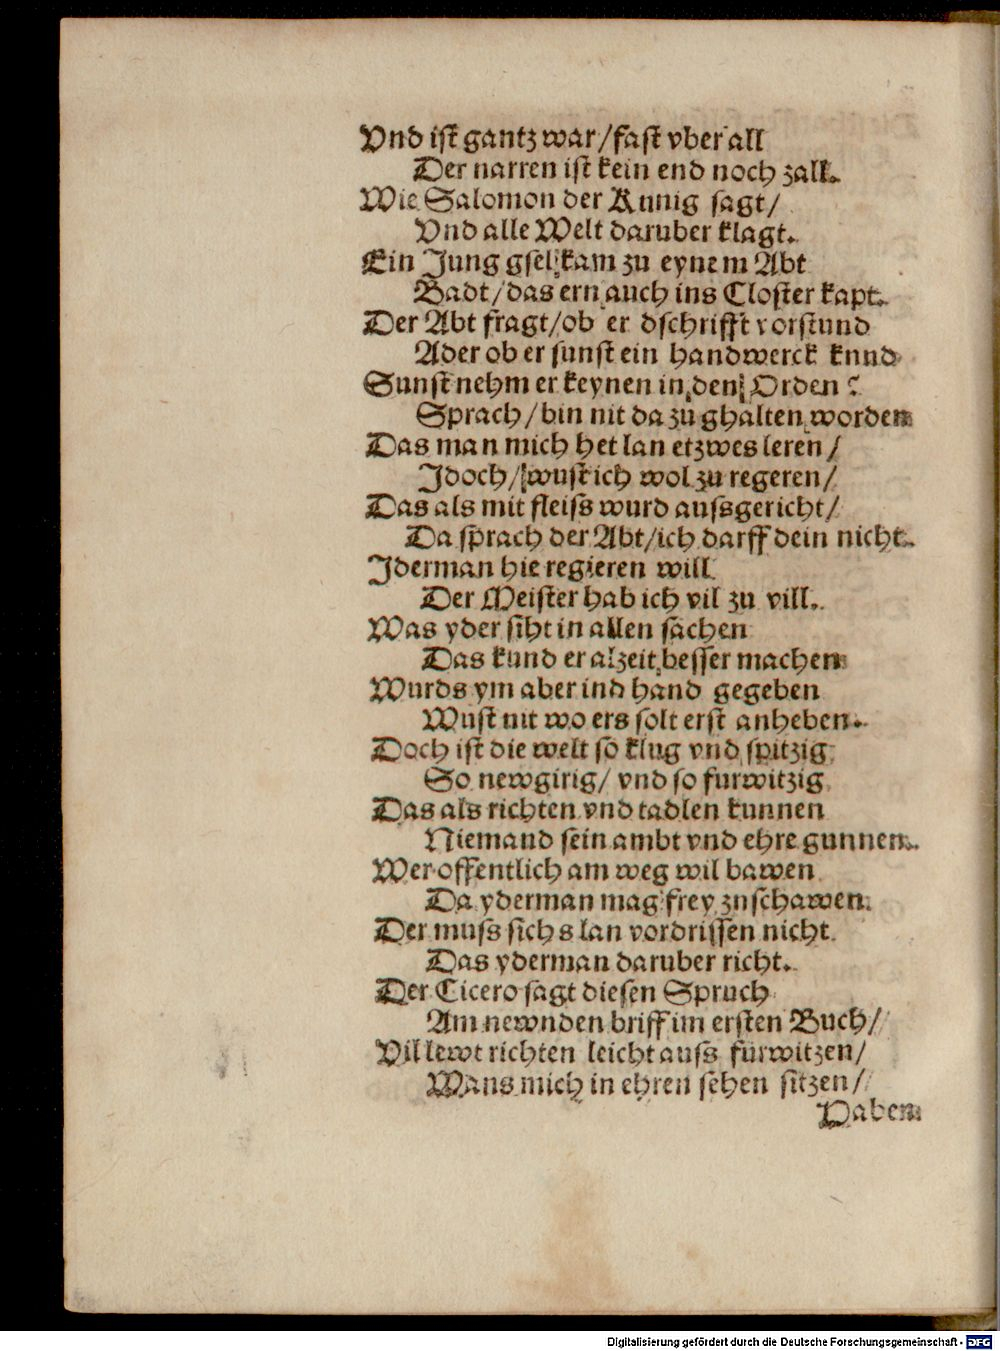 Vnd ist gantz war/fast vber all
Der narren ist kein end noch zall.
Wie Salomon der Kunig sagt/
Vnd alle Welt daruber klagt.
Ein Jung gsel kam zu eynem Abt
Badt/das ern auch ins Closter kapt.
Der Abt fragt/ob er dschrifft vorstund
Ader ob er sunst ein handwerck knnd
Sunst nehm er keynen in den Orden?
Sprach/bin nit da zu ghalten worden
Das man mich het lan etzwes leren/
Jdoch/wust ich wol zu regeren/
Das als mit fleiss wurd aussgericht/
Da sprach der Abt/ich darff dein nicht.
Jderman hie regieren will
Der Meister hab ich vil zu vill.
Was yder siht in allen sachen
Das kund er alzeit besser machen
Wurds ym aber ind hand gegeben
Wust nit wo ers solt erst anheben.
Doch ist die welt so klug vnd spitzig
So newgirig/ vnd so furwitzig
Das als richten vnd tadlen kunnen
Niemand sein ambt vnd ehre gunnen.
Wer offentlich am weg wil bawen
Da yderman mag frey znschawen.
Der muss sichs lan vordrissen nicht
Das yderman daruber richt.
Der Cicero sagt diesen Spruch
Am newnden briff im ersten Buch/
Vil lewt richten leicht auss furwitzen/
Wans mich in ehren sehen sitzen/
Haben
Digitalisierung gefördert durch die Deutsche Forschungsgemeinschaft - DFG